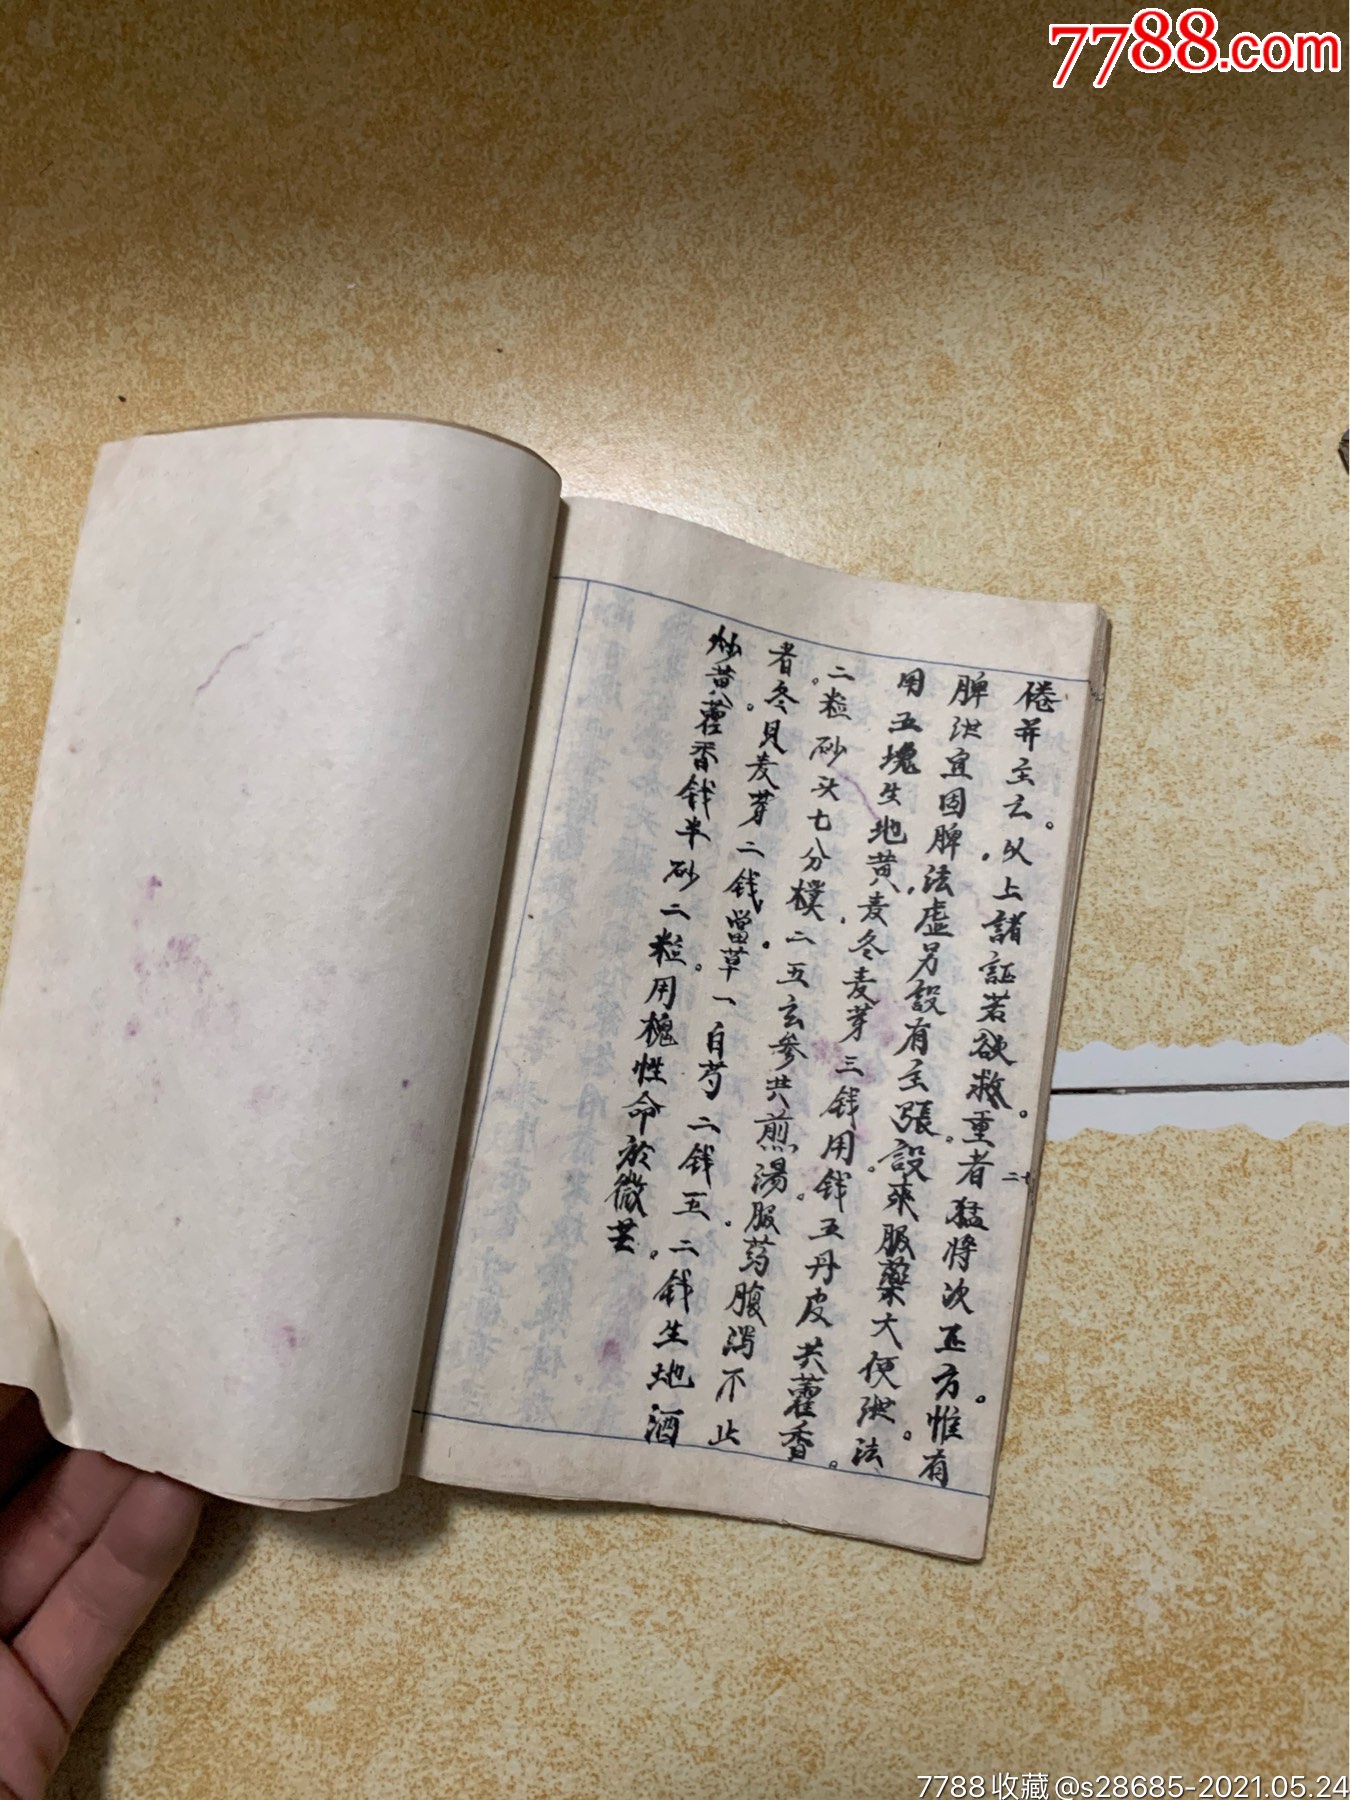 7788.com
倦并主云。以上諸証若欲救。重者猛將次正方。惟有
脾泄宜固脾。法虛另設有主張。設來服藥大便泄。法
用五塊生地黄。麦冬麦芽三钱用钱五丹皮共藿香。
二粒砂头七分樸二五玄参共煎湯。服药腹瀉不止
者。冬貝麦芽二钱當草一白芍二钱五。二钱生地酒
炒黄。藿香钱半砂二粒。用槐性命於微芒。
7788收藏@s28685-2021.05.24